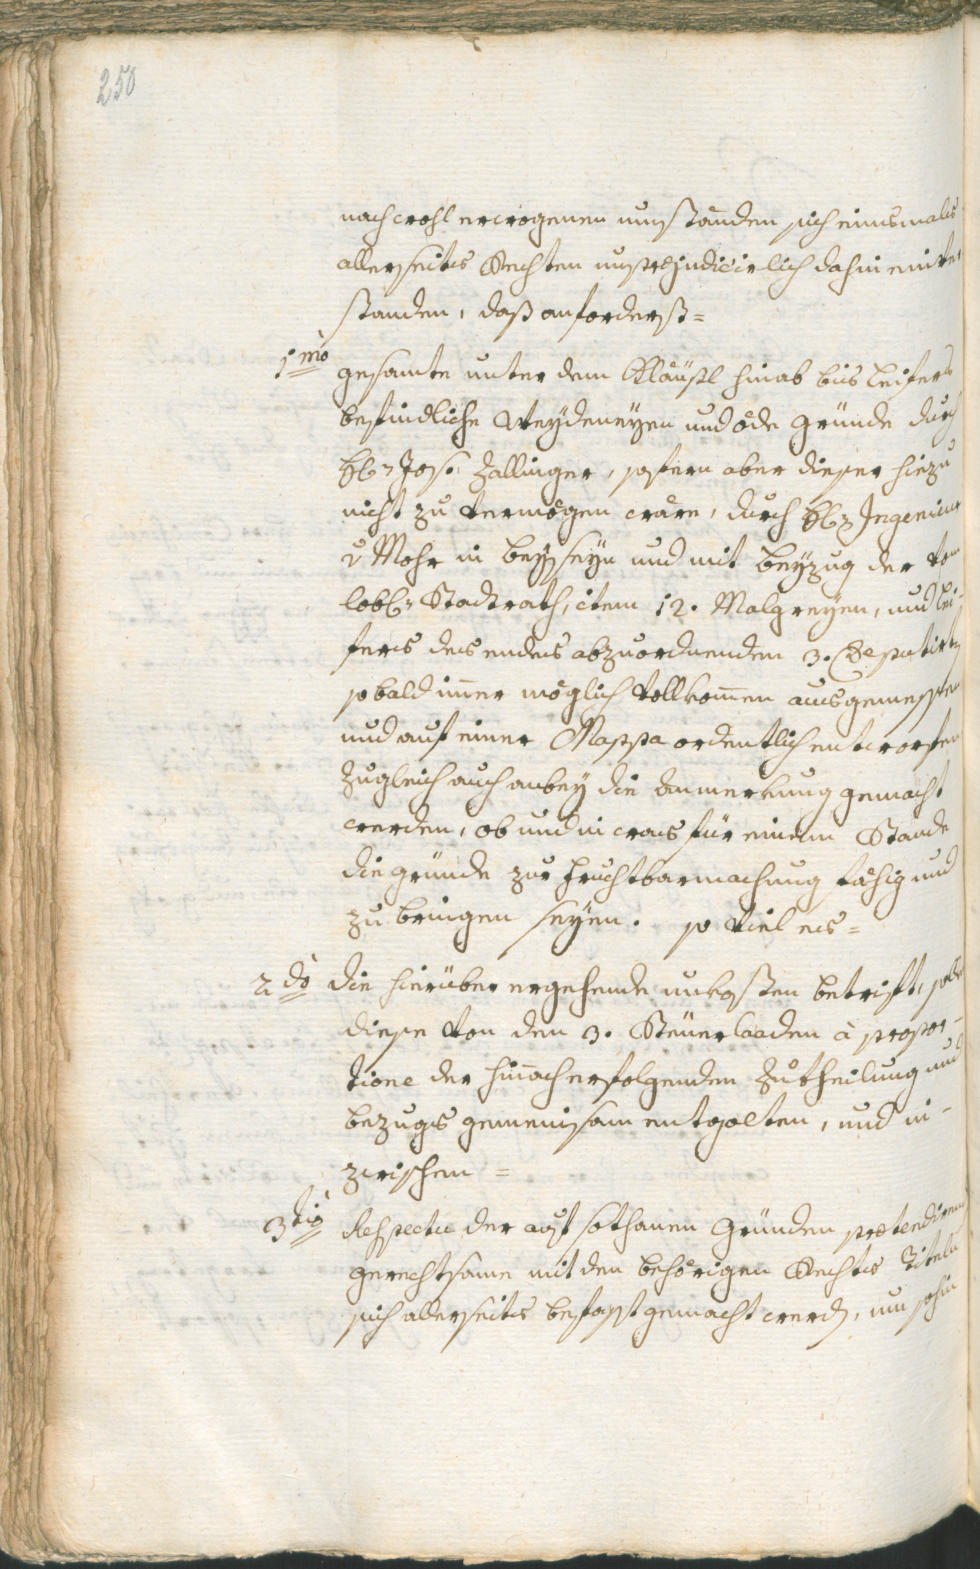 250
nach wohl erwogenen umständen sich einsmals
allerseits Rechten unpræjudicirlich dahin einver
standen, daß anforderst=
1mo gesamte unter dem Kläusl hinab bis Leifers
befindliche Weydeneyen und öde gründe durch
H: Jos: Zallinger, sofern aber dieser hiezu
nicht zu vermögen wäre, durch H: Ingenieur
v Mohr in beyseyn und mit beyzug der vom
löbl: Stadtrath, item 12. Malgreyen, und Lei-
fers des endes abzuordnenden 3. Deputirten
so bald imer möglich vollkomen ausgemessen
und auf einer Mappa ordentlich entworfen
zugleich auch anbey die anmerkung gemacht
werden, ob und in was für einem Stande
die gründe zur fruchtbarmachung fähig und
zu bringen seyen. so viel es=
2do die hierüber ergehende unkosten betrift, solle
diese von den 3. Steüerladen à propor-
tione der hinach erfolgenden Zutheilung und
bezugs gemeinsam entgolten, und in-
zwischen=
3tio Respectu der auf sothanen gründen prætendiren
gerechtsame mit den behörigen Rechts Titeln
sich allerseits befasst gemacht werd, um sohin